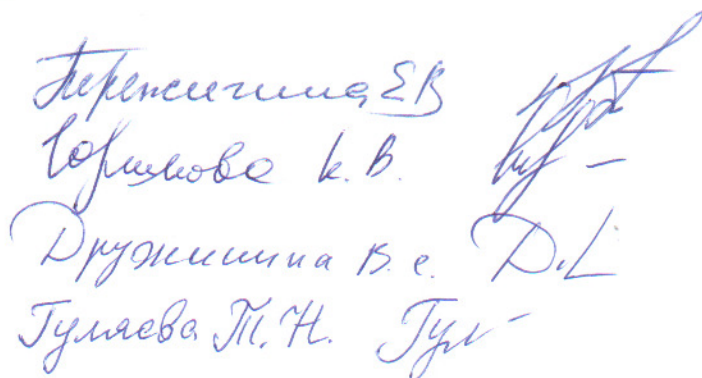 Пережигина ЕВ
Горшкова К. В.
Дружинина В. С.
Гуляева Т. Н. Гул